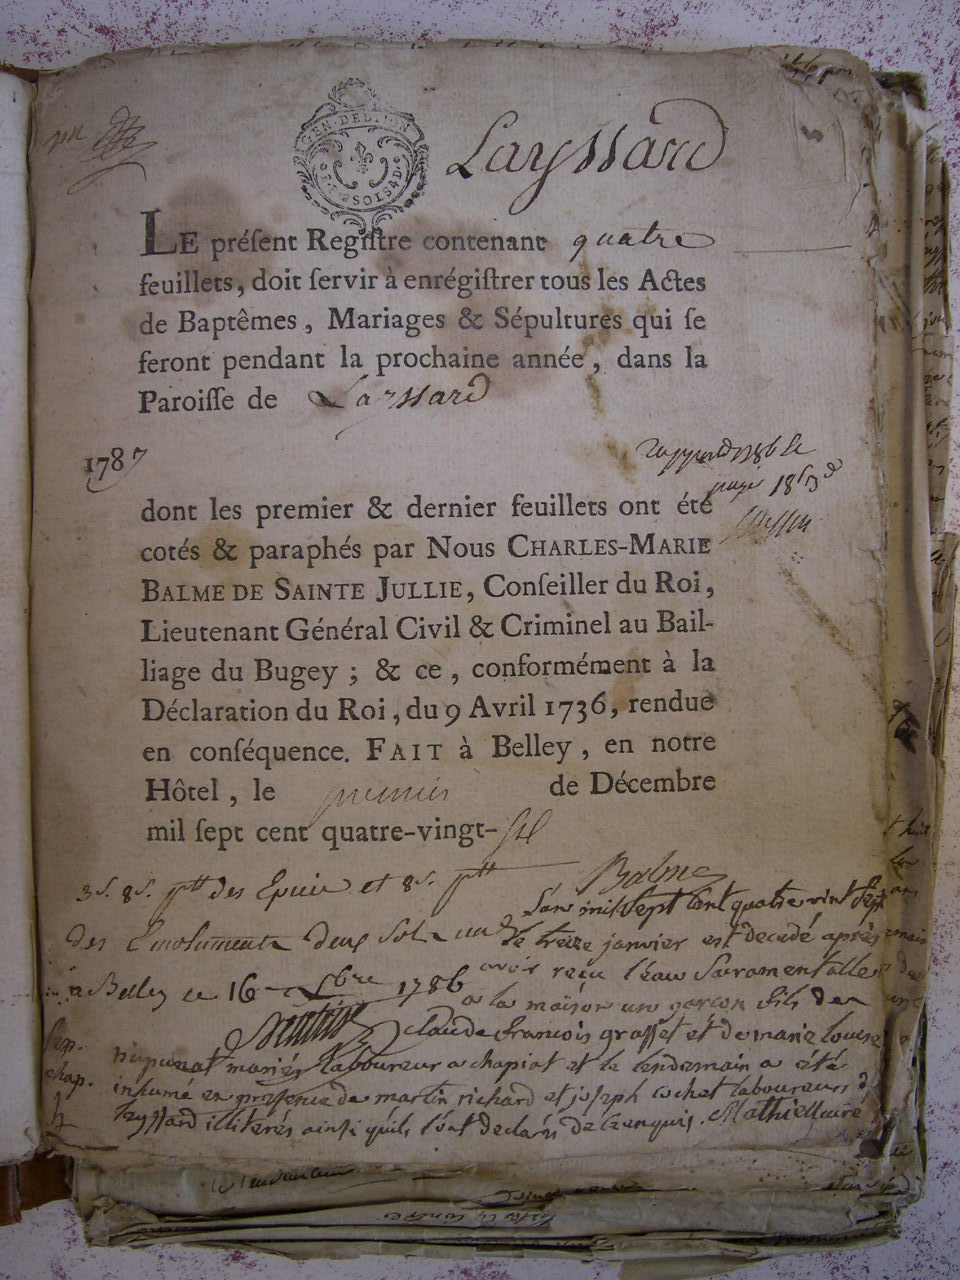 GEN·DE LYON
Layssard
LE préſent Regiſtre contenant quatre
feuillets, doit ſervir à enrégiſtrer tous les Actes
de Baptêmes, Mariages & Sépultures qui ſe
feront pendant la prochaine année, dans la
Paroiſſe de Layssard
1787
dont les premier & dernier feuillets ont été
cotés & paraphés par Nous CHARLES-MARIE
BALME DE SAINTE JULLIE, Conſeiller du Roi,
Lieutenant Général Civil & Criminel au Bail-
liage du Bugey ; & ce, conformément à la
Déclaration du Roi, du 9 Avril 1736, rendue
en conſéquence. FAIT à Belley, en notre
Hôtel, le premier de Décembre
mil ſept cent quatre-vingt-six
Balme
3s. 8d. des Epices et 8s.
des Emoluments deux sols
a Belley ce 16 Xbre 1786
L'an mil sept cent quatre vint sept
le treize janvier est decedé après
avoir reçu l'eau Sacramentalle
a la maison un garçon fils de
claude françois grosset et de marie louise
mariés laboureur a chapiat et le lendemain a été
inhumé en presence de martin richard et joseph cochet laboureurs d
leyssard illiterés ainsi qu'ils l'ont declaré de ce enquis. Mathieu curé